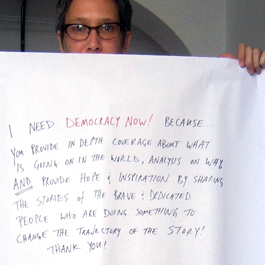 I NEED DEMOCRACY NOW! BECAUSE...
YOU PROVIDE IN DEPTH COVERAGE ABOUT WHAT
IS GOING ON IN THE WORLD, ANALYSIS ON WHY
AND PROVIDE HOPE & INSPIRATION BY SHARING
THE STORIES OF THE BRAVE & DEDICATED
PEOPLE WHO ARE DOING SOMETHING TO
CHANGE THE TRAJECTORY OF THE STORY!
THANK YOU!